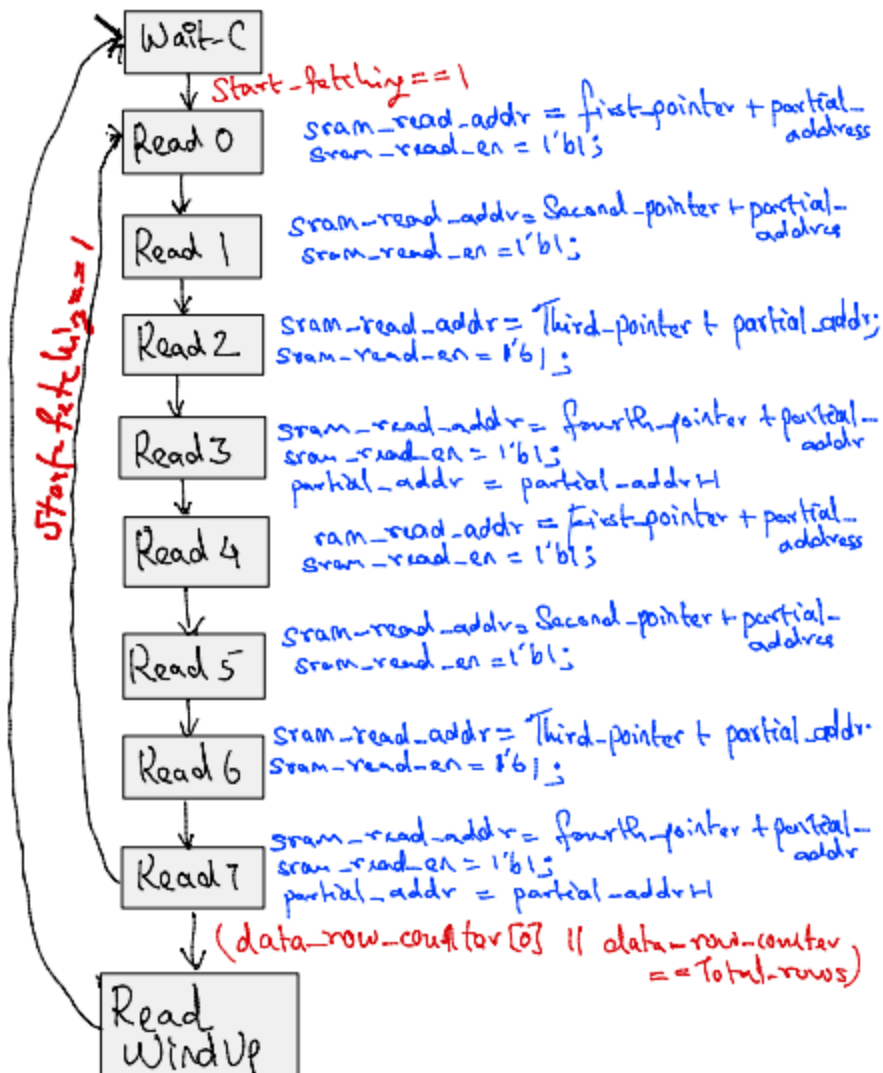 Wait-C
Start-fetching==1
Read 0
sram_read_addr = first-pointer + partial_
address
sram_read_en = 1'b1;
Read 1
sram-read_addr= Second-pointer + partial-
addres
sram_read_en = 1'b1;
Read 2
sram_read_addr = Third-pointer + partial_addr;
sram-read-en = 1'b1;
Start-fetching==1
Read 3
sram_read_addr = fourth-pointer + partial-
addr
sram_read_en = 1'b1;
partial_addr = partial-addr+1
Read 4
ram_read_addr = First-pointer + partial_
address
sram_read_en = 1'b1;
Read 5
sram-read_addr= Second-pointer + partial-
addres
sram_read_en = 1'b1;
Read 6
sram_read_addr = Third-pointer + partial_addr.
sram-read-en = 1'b1;
Read 7
sram_read_addr = fourth-pointer + partial-
addr
sram_read_en = 1'b1;
partial_addr = partial-addr+1
(data_row_counter[0] || data-row-counter
== Total-rows)
Read
WindUp